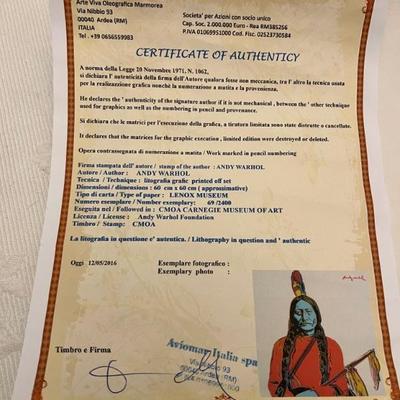 Arte Viva Oleografica Marmorea
Via Nibbio 93
00040 Ardea (RM)
ITALIA
Tel . +39 0656559983
Societa' per Azioni con socio unico
Cap. Soc. 2.000.000 Euro - Rea RM385256
P.IVA 01069951000 Cod. Fisc. 02523730584
CERTIFICATE OF AUTHENTICY
A norma della Legge 20 Novembre 1971, N. 1062,
si dichiara l' autenticità della firma dell'Autore qualora fosse non meccanica, tra l' altro la tecnica usata
per la realizzazione grafica nonchè la numerazione a matita e la provenienza.
He declares the ' authenticity of the signature author if it is not mechanical , between the ' other technique
used for graphics as well as the numbering in pencil and provenance.
Si dichiara che le matrici per l'esecuzione della grafica, a tiratura limitata sono state distrutte o cancellate.
It declares that the matrices for the graphic execution , limited edition were destroyed or deleted.
Opera contrassegnata di numerazione a matita / Work marked in pencil numbering
Firma stampata dell' autore / stamp of the author : ANDY WARHOL
Autore / Author : ANDY WARHOL
Tecnica / Technique : litografia grafic printed off set
Dimensioni / dimensions : 60 cm x 60 cm ( approssimative)
Tipo di carta / Type of paper : LENOX MUSEUM
Numero esemplare / Number exemplary: 69 /2400
Eseguita nel / Followed in : CMOA CARNEGIE MUSEUM OF ART
Licenza / License : Andy Warhol Foundation
Timbro / Stamp: CMOA
La litografia in questione e' autentica. / Lithography in question and ' authentic
Oggi 12/05/2016
Esemplare fotografico :
Exemplary photo :
Timbro e Firma
Aviomar Italia spa
Via Nibbio 93
00040 Ardea (RM)